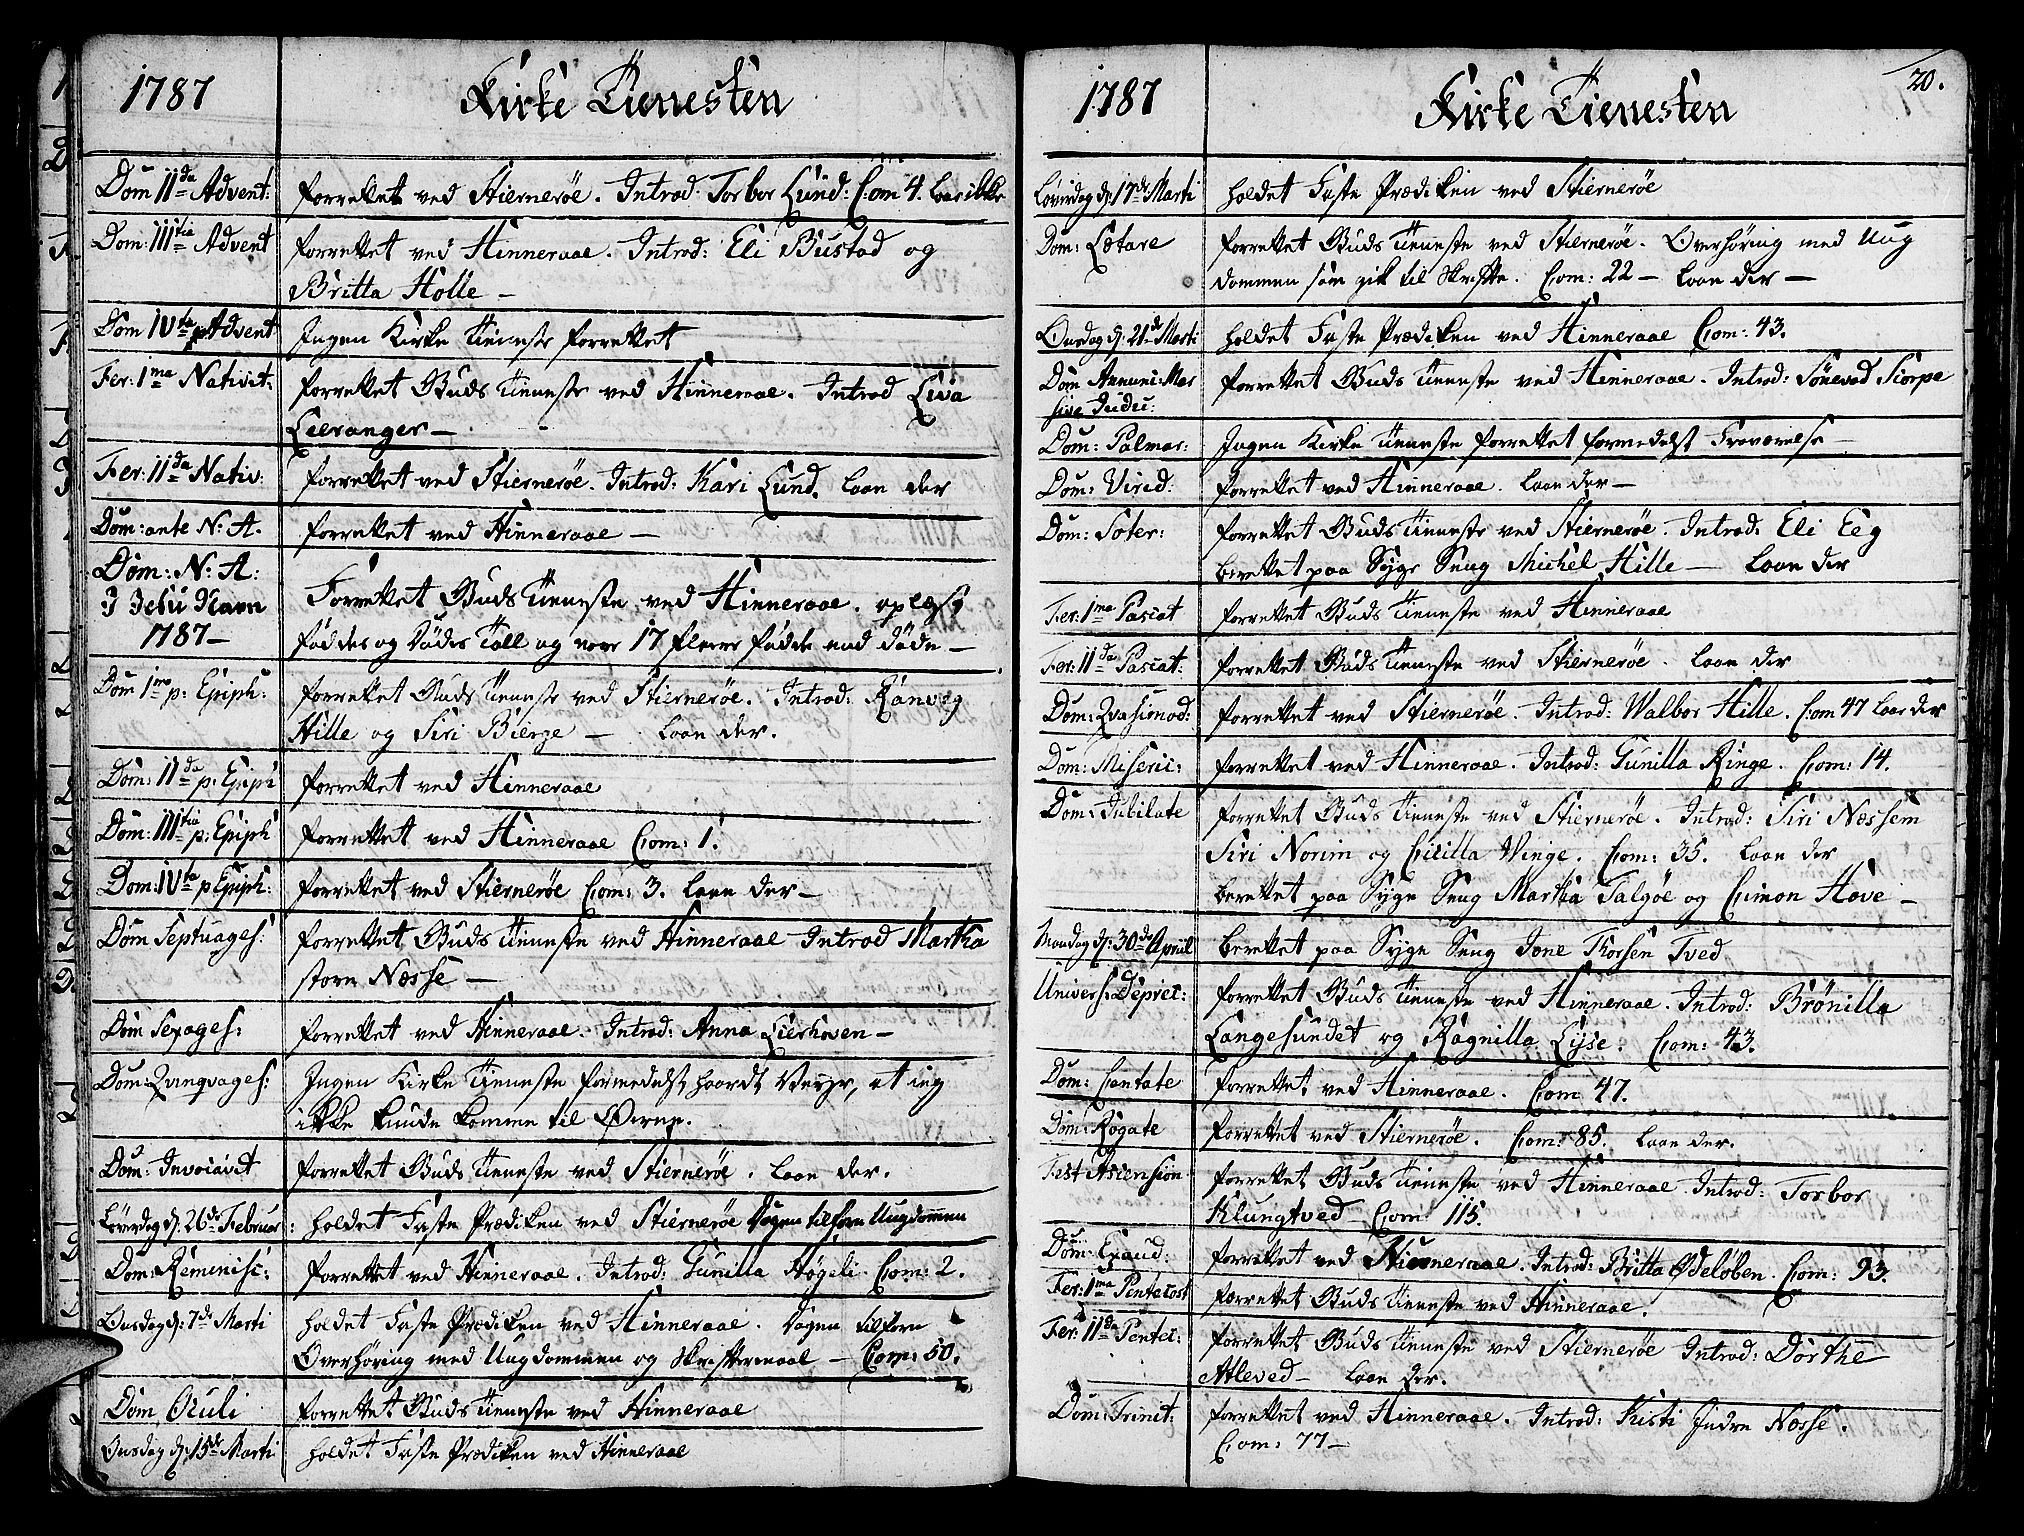 1787 Kirke Tienesten
Dom IIda Advent: forrettet ved Stiernerøe. Introd: Torbor Lund: Com 4.
Dom: IIItia Advent forrettet ved Hinneraae. Introd: Eli Bustad og
Britta Holle —
Dom IVta p Advent Ingen Kirke Tieneste forrettet
Fer: 1ma Nativit: forrettet Guds Tienneste ved Hinneraae. Introd Liva
Lieranger —
Fer: IIda Nativ: forrettet ved Stiernerøe. Introd: Kari Lund. laae der
Dom: ante N: A. forrettet ved Hinneraae —
Dom: N: A: Forrettet Guds Tienneste ved Hinneraae. oplæst
I Jesu Navn
1787 — føddes og dødes Tall og var 17 fleere fødde end døde —
Dom 1ma p: Epiph: forrettet Guds Tienneste ved Stiernerøe. Introd: Ranveg
Hille og Siri Bierge — laae der.
Dom: IIda p: Epiph forrettet ved Hinneraae
Dom: IIItia p: Epiph forrettet ved Hinneraae Com: 1.
Dom: IVta p Epiph: forrettet ved Stiernerøe Com: 3. laae der —
Dom Septuages: forrettet Guds Tienneste ved Hinneraae Introd Martha
storn Næsse —
Dom Sexages: forrettet ved Hinneraae. Introd: Anna Lierhoven —
Dom: Qvinqvages: Ingen Kirke Tienneste formedelst haardt Veyr, at jeg
ikke kunde komme til Øerne.
Dom: Invocavit forrettet Guds Tienneste ved Stiernerøe. laae der.
Løverdag d: 26de Februar: holdet Faste Prædiken ved Stiernerøe Dagen tilforn Ungdommen
Dom: Reminisc: forrettet ved Hinneraae. Introd: Gunilla Høgeli Com: 2.
Onsdag d: 7de Marti holdet Faste Prædiken ved Hinneraae. Dagen tilforn
Overhøring med Ungdommen og Skriftemaal — Com: 50.
Dom Oculi forrettet Guds Tienneste ved Hinneraae
Onsdag d: 15de Marti holdet Faste Prædiken ved Hinneraae
1787 Kirke Tienesten 20.
Løverdag d: 17de Marti holdet Faste Prædiken ved Stiernerøe
Dom: Lætare forrettet Guds Tienneste ved Stiernerøe. Overhøring med Ung
dommen som gik til Skrifte. Com: 22 — laae der —
Onsdag d: 21de Marti holdet Faste Prædiken ved Hinneraae Com: 43.
Dom Annunc: Mar forrettet Guds Tienneste ved Hinneraae. Introd: Sønevad Skorpe
sive Judic:
Dom: Palmar: Ingen Kirke Tienneste forrettet formedelst Fraværelse —
Dom: Virid: forrettet ved Hinneraae. laae der —
Dom: Soter: forrettet Guds Tienneste ved Stiernerøe. Introd: Eli Eeg
berettet paa Syge Seng Michel Hille — laae der
Fer: 1ma Pascat forrettet Guds Tienneste ved Hinneraae
Fer: IIda Pascat: forrettet Guds Tienneste ved Stiernerøe. laae der
Dom: Qvasimod: forrettet ved Stiernerøe. Introd: Walbor Hille. Com 47 laae der
Dom: Miseric: forrettet ved Hinneraae. Introd: Gunilla Ringe. Com: 14.
Dom: Jubilate forrettet Guds Tienneste ved Stiernerøe. Introd: Siri Næssem
Siri Norim og Cicilla Vinge. Com: 35. laae der
berettet paa Syge Seng Martha Talgøe og Cimon Hove —
Mondag d: 30de April berettet paa Syge Seng Jone Thorsen Tved
Univers: Deprec: forrettet Guds Tienneste ved Hinneraae. Introd: Brønilla
Langesundet og Ragnilla Lyse. Com: 43.
Dom: Cantate forrettet ved Hinneraae. Com 47.
Dom: Rogate forrettet ved Stiernerøe. Com: 85. laae der.
Fest Ascension forrettet Guds Tienneste ved Hinneraae Introd: Torbor
Klungtved — Com: 115.
Dom: Exaud: forrettet ved Hinneraae. Introd: Britta Ødeløben. Com: 93.
Fer: 1ma Pentecost forrettet Guds Tienneste ved Hinneraae.
Fer: IIda Pentec: forrettet Guds Tienneste ved Stiernerøe Introd: Dorthe
Atleved — laae der.
Dom: Trinit: forrettet ved Hinneraae. Introd: Kisti Indre Nosse.
Com: 77 —